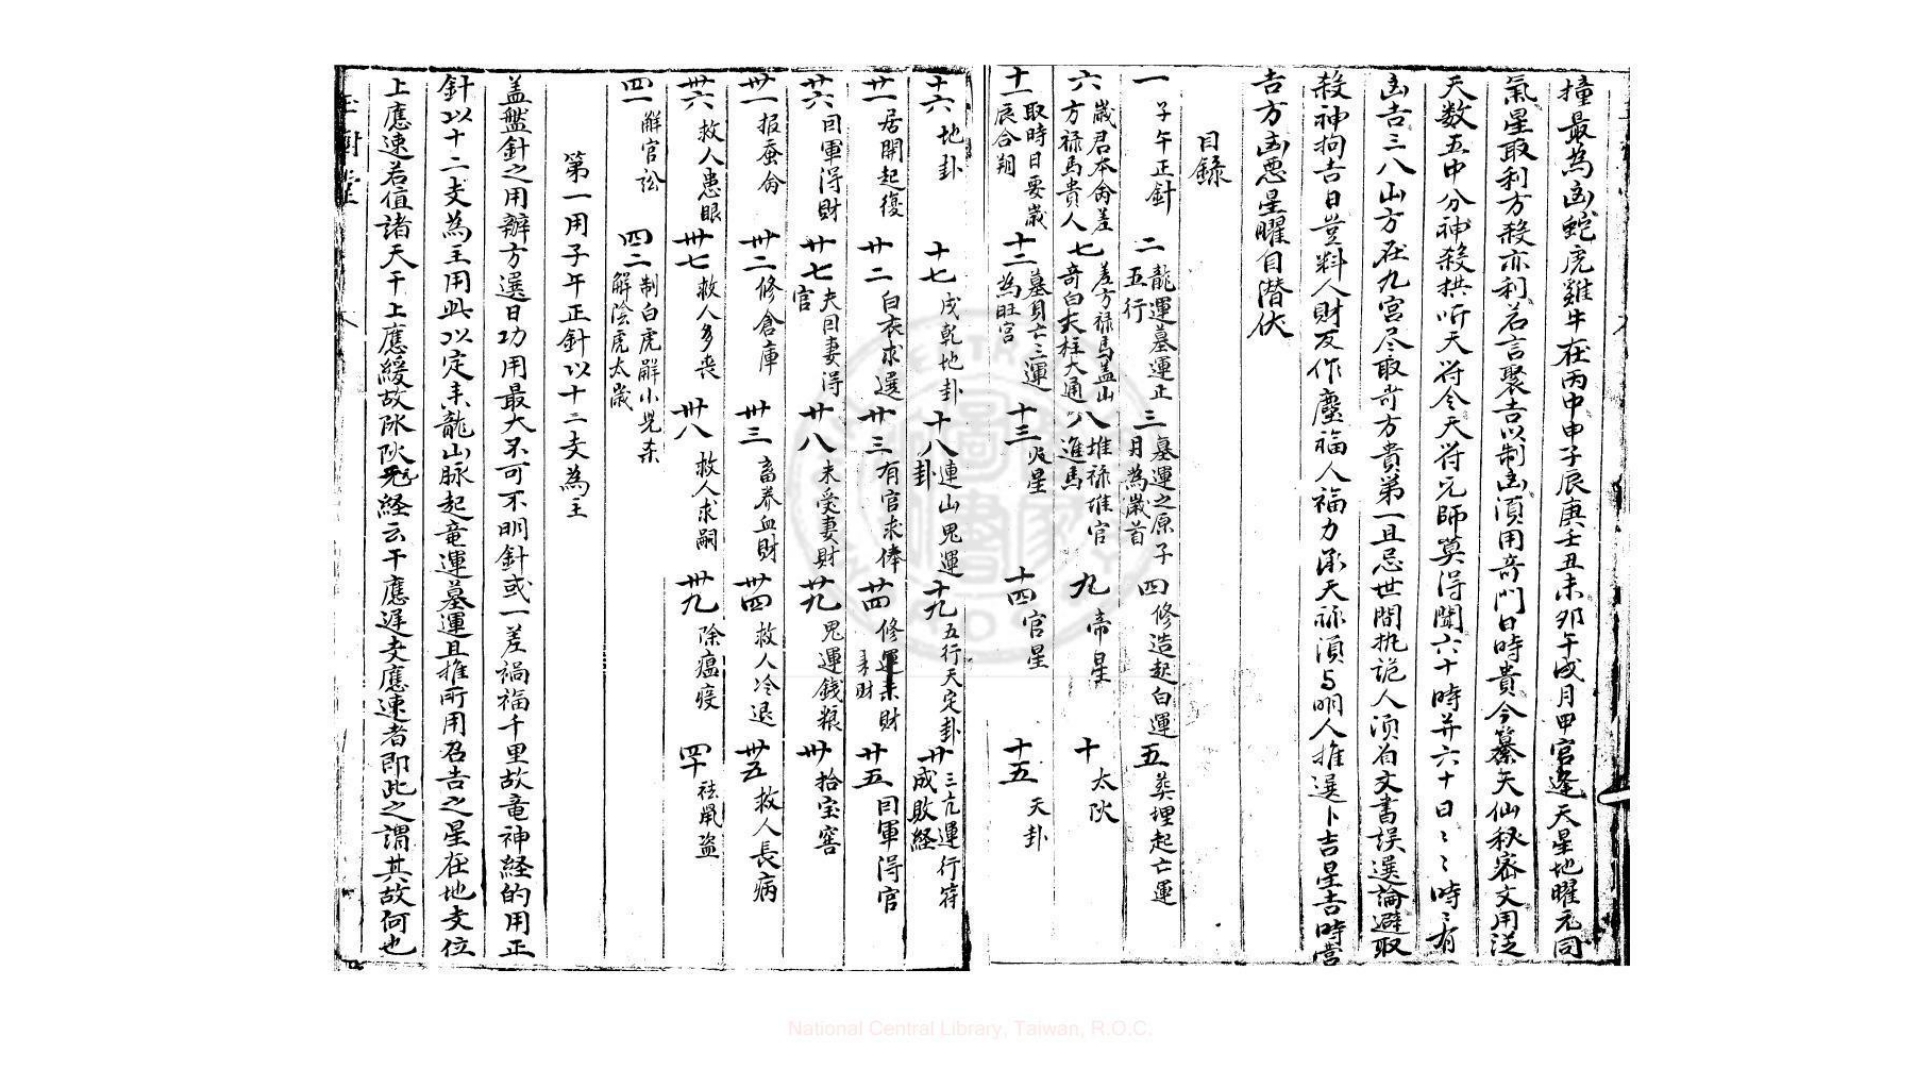 撞最為凶蛇虎雞牛在丙申申子辰庚壬丑未卯午戌月甲官逢天星地曜元同
氣星取利方殺亦利名言聚吉以制凶須用奇門日時貴今纂天仙秘密文用泛
天数五中分神殺拱听天符令天符元師莫得閗六十時并六十日〻〻時〻有
凶吉三八山方在九宮尽取奇方貴第一且忌世間执诡人须自文書误選論避取
殺神拘吉日豈料人財反作塵福人福力承天祿須与明人推選卜吉星吉時當
吉方凶悪星曜自潜伏
目錄
一 子午正針 二 龍運墓運正五行 三 墓運之原子月為歲首 四 修造起白運 五 葬埋起亡運
六 歲君本命差方禄馬貴人 七 差方禄馬盖山竒白天柱大通 八 堆禄堆官進馬 九 帝星 十 太阳
十一 取時日要歲辰合朔 十二 墓貝亡三運為旺宮 十三 火星 十四 官星 十五 天卦
十六 地卦 十七 戌乾地卦 十八 連山鬼運卦 十九 五行天定卦 廿 三元運行符成敗経
廿一 居閒起復 廿二 白衣求選 廿三 有官求俸 廿四 修運未財 廿五 因軍得官
廿六 因軍得財 廿七 夫因妻得官 廿八 未受妻財 廿九 鬼運錢粮 卅 拾宝窖
卅一 报蚕命 卅二 修倉庫 卅三 畜养血財 卅四 救人冷退 卅五 救人長病
卅六 救人患眼 卅七 救人多丧 卅八 救人求嗣 卅九 除瘟疫 四十 祛鼠盗
四一 觧官訟 四二 制白虎觧小兒杀解陰虎太歲
第一用子午正針以十二支為主
盖盤針之用辧方選日功用最大不可不明針或一差禍福千里故竜神経的用正
針以十二支為主用此以定未龍山脉起竜運墓運且推所用召吉之星在地支位
上應速若值諸天干上應緩故陰阳経云干應遅支應速者即此之謂其故何也
National Central Library, Taiwan, R.O.C.